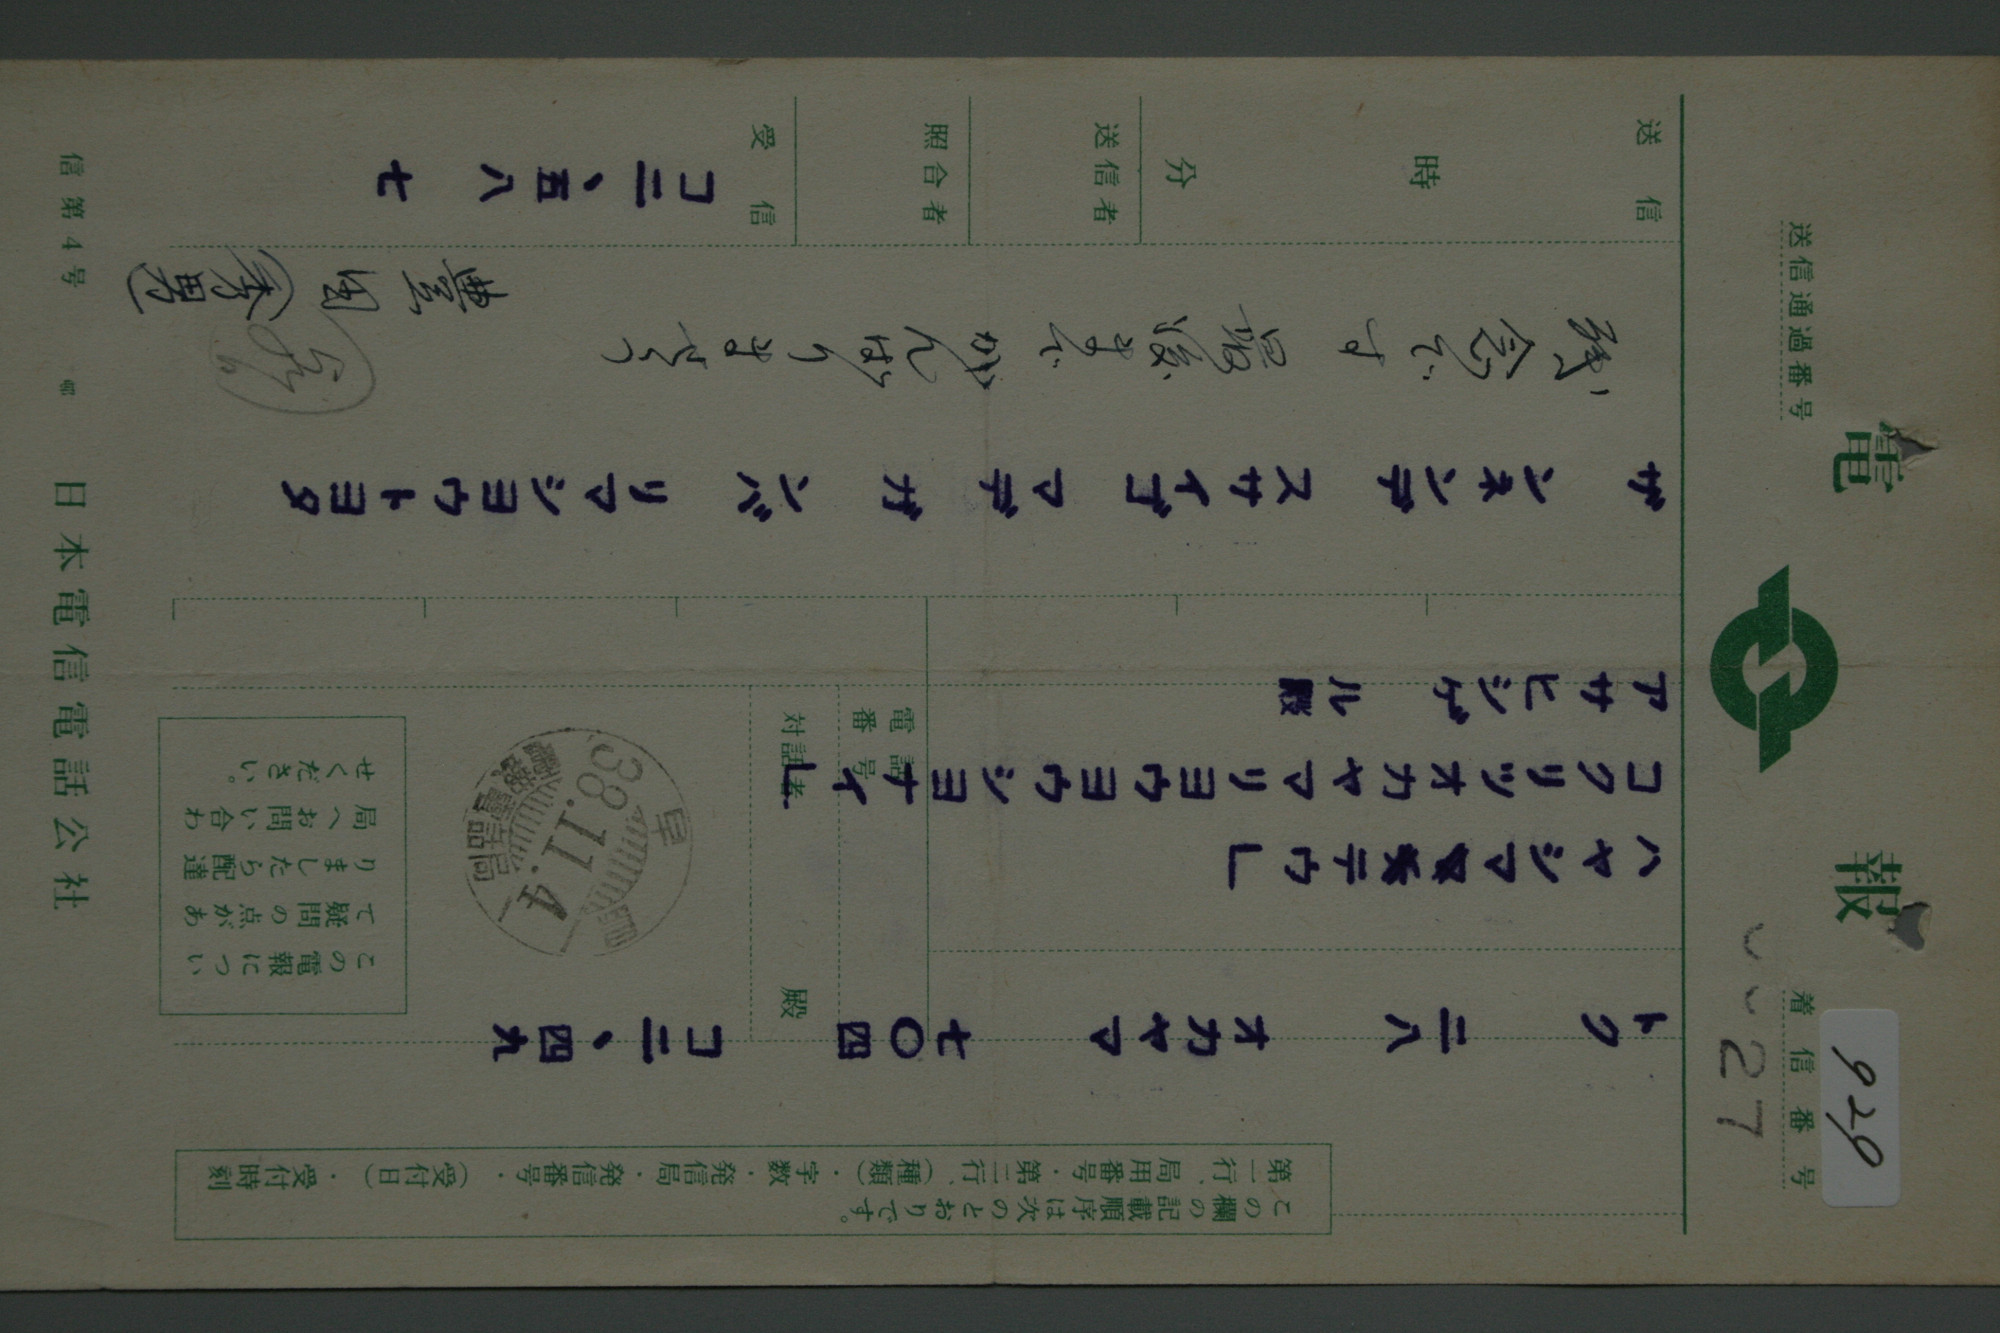 電報
送信通過番号
着信番号
920
27
この欄の記載順序は次のとおりです。
第一行、局用番号・第二行、(種類)・字数・発信局・発信番号・(受付日)・受付時刻
トク 二八 オカヤマ 七〇四 コ二、四九
ハヤシマ テウ」
コクリツオカヤマリヨウヨウシヨナイ」
アサヒシゲル殿
電話番号
対話者 殿
早島
38.11.4
電報電話局
この電報について疑問の点がありましたら配達局へお問い合わせください。
ザンネンデスサイゴマデガンバリマシヨウトヨタ
残念です 最後までがんばりませう
豊田(秀男)
送信 時 分
送信者
照合者
受信 コ二、五八 七
信第4号
日本電信電話公社